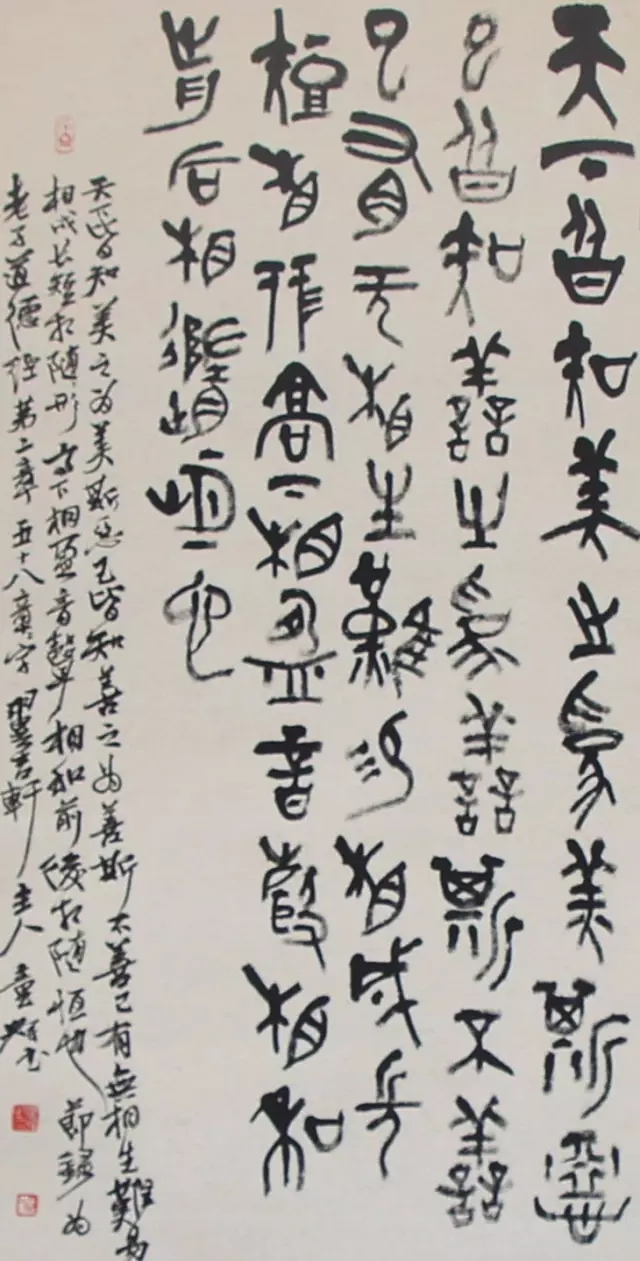 天下皆知美之為美斯惡
已皆知善之為善斯不善
已有无相生難易相成長
短相形高下相盈音聲相和
前后相隨恒也
天下皆知美之为美斯惡已皆知善之为善斯不善已有無相生難易
相成长短相随形高下相盈音聲相和前後相随恒也 節錄为
老子道德經第二章五十八章字軒主人童书